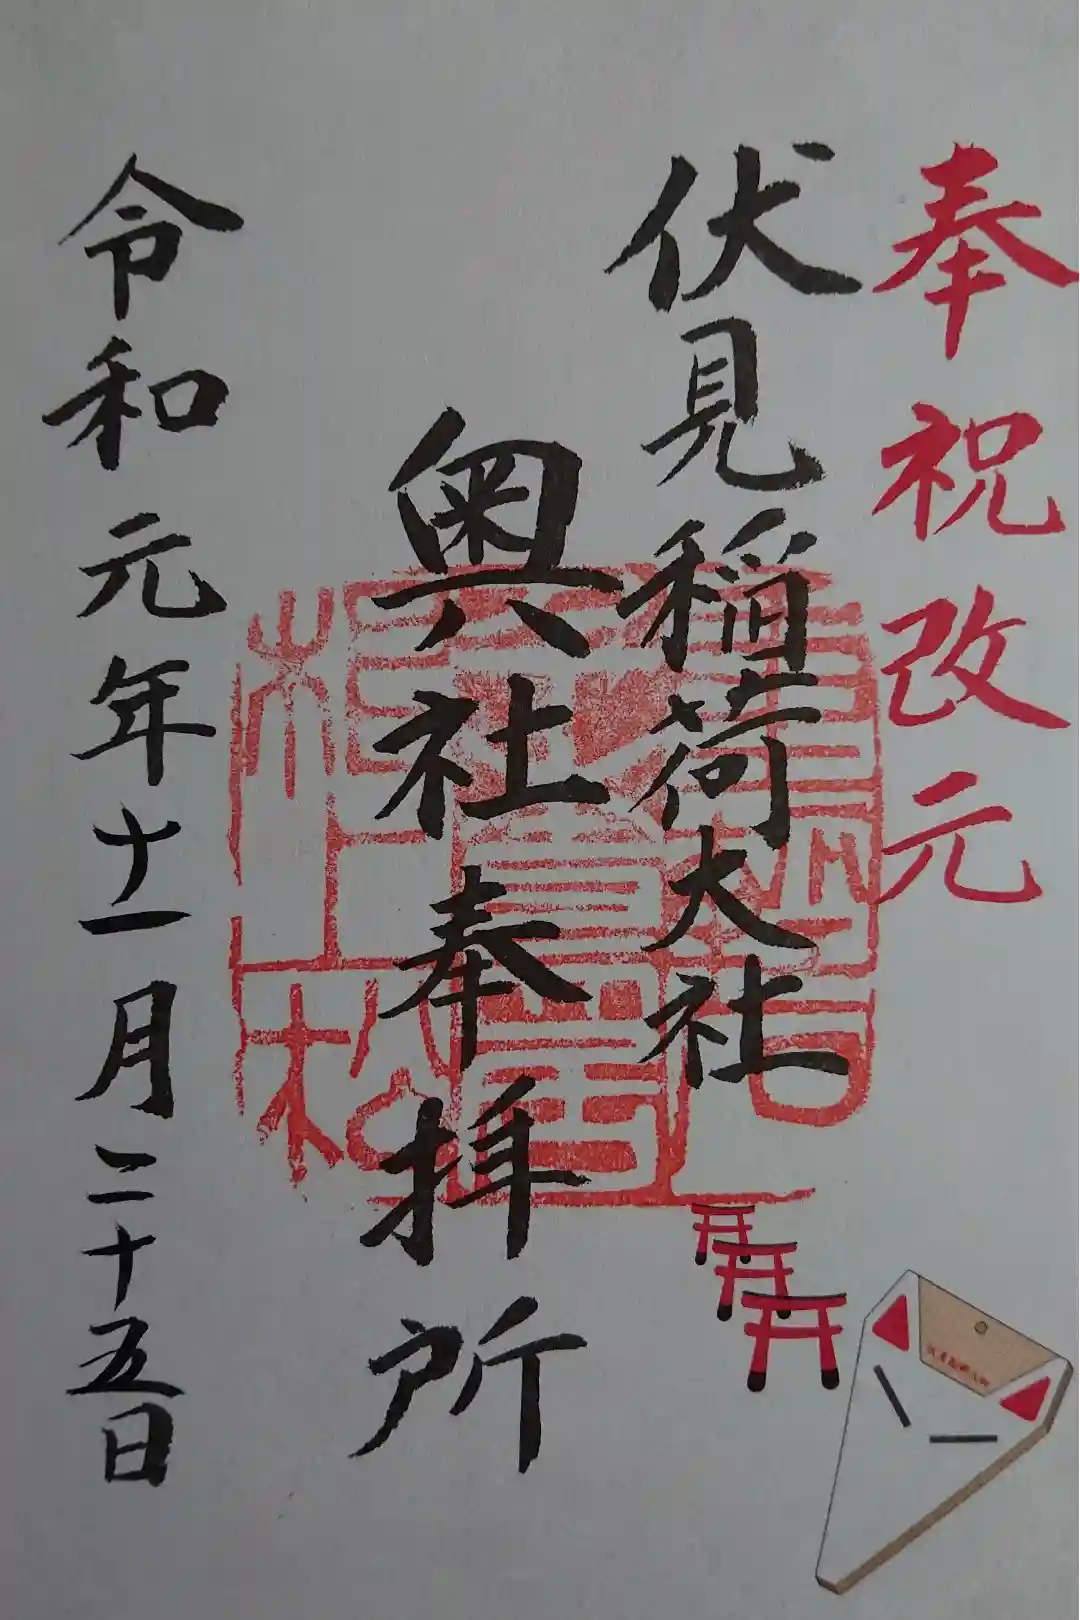 奉祝改元
伏見稲荷大社
奥社奉拝所
令和元年十一月二十五日